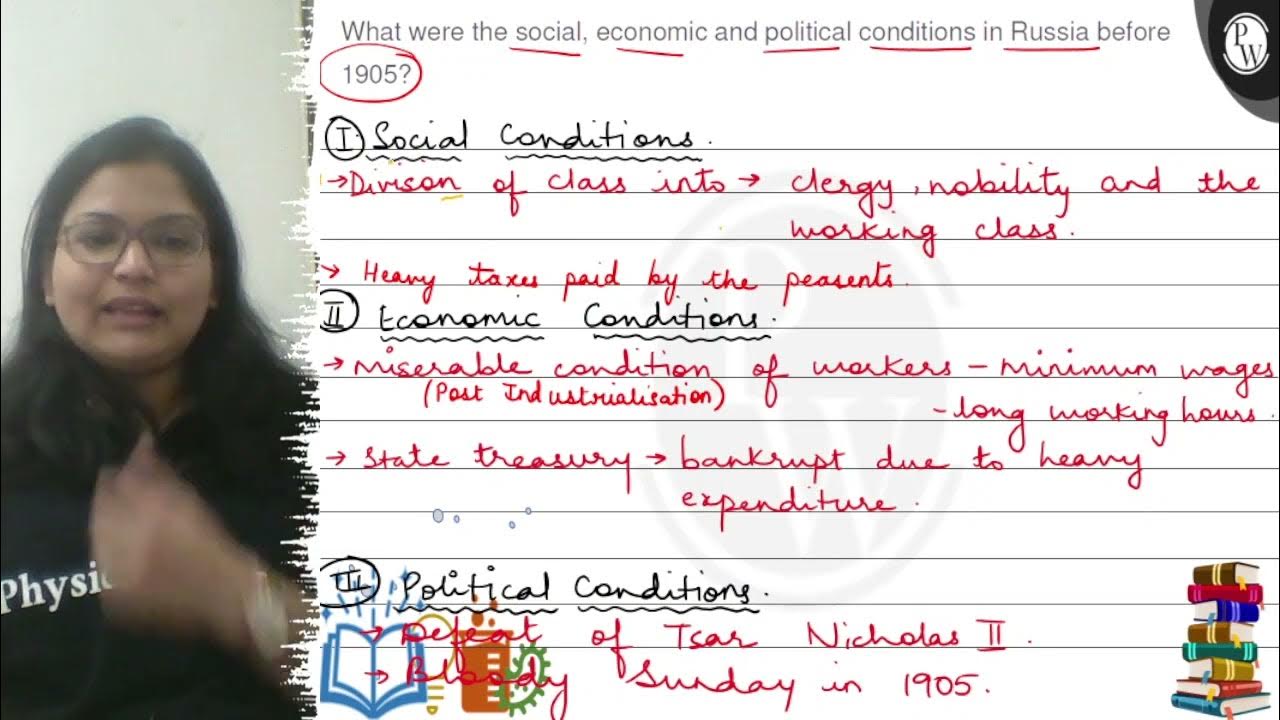 What were the social, economic and political conditions in Russia before
1905?
PW
I. Social Conditions.
→ Divison of class into → clergy, nobility and the
working class.
→ Heavy taxes paid by the peasents.
II Economic Conditions.
→ Miserable condition of workers - minimum wages
(Post Industrialisation)
- long working hours.
→ State treasury → bankrupt due to heavy
expenditure.
III Political Conditions.
→ Defeat of Tsar Nicholas II.
→ Bloody Sunday in 1905.
Physi